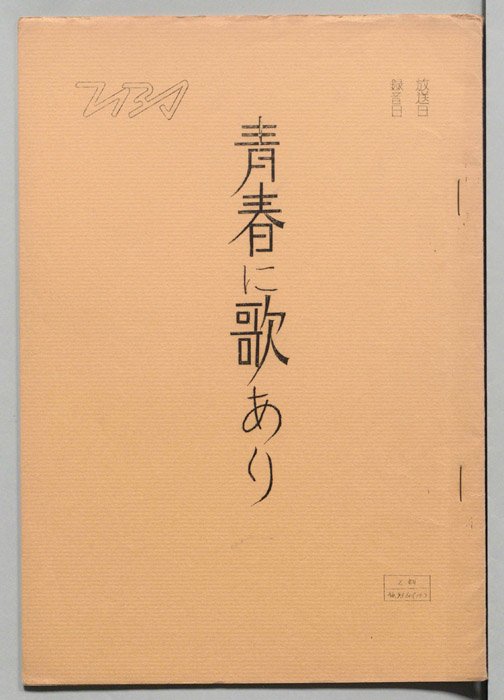 放送日
録音日
青春に歌あり